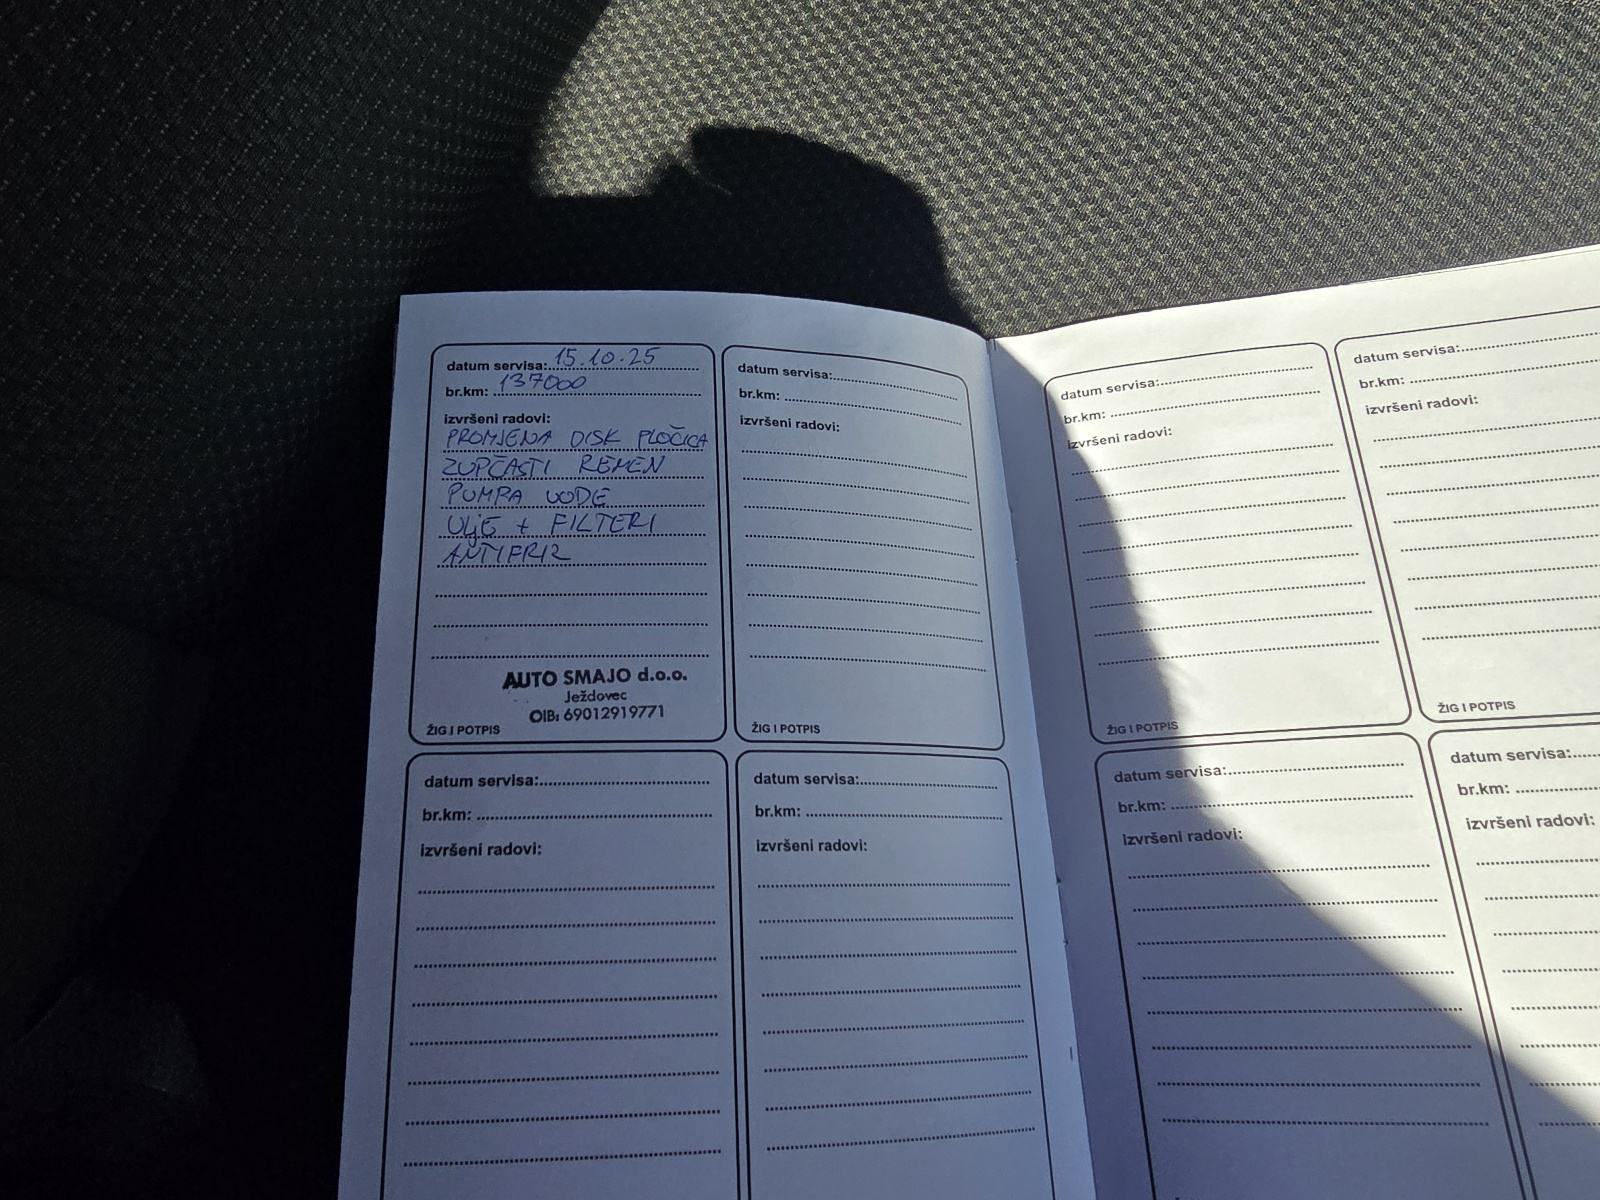 datum servisa: 15.10.25
br.km: 137000
izvršeni radovi:
PROMJENA DISK PLOČICA
ZUPČASTI REMEN
PUMPA VODE
ULjE + FILTERI
ANTIFRIZ
AUTO SMAJO d.o.o.
Ježdovec
OIB: 69012919771
ŽIG I POTPIS
datum servisa:
br.km:
izvršeni radovi:
ŽIG I POTPIS
datum servisa:
br.km:
izvršeni radovi:
datum servisa:
br.km:
izvršeni radovi:
datum servisa:
br.km:
izvršeni radovi:
ŽIG I POTPIS
datum servisa:
br.km:
izvršeni radovi:
ŽIG I POTPIS
datum servisa:
br.km:
izvršeni radovi:
datum servisa:
br.km:
izvršeni radovi: